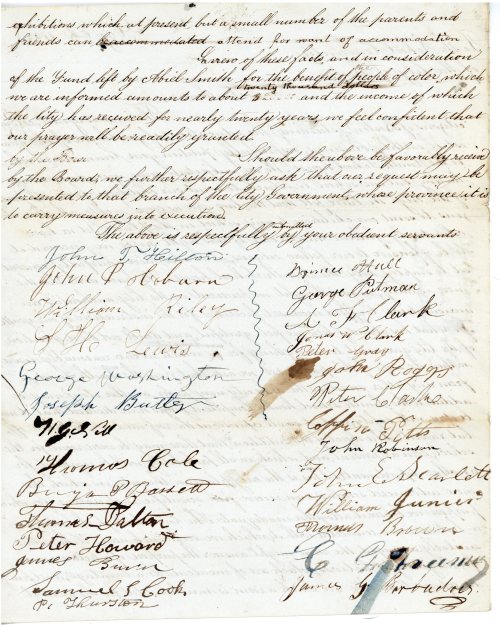 exhibitions which at present but a small number of the parents and
friends can be accommodated attend for want of accommodation
In view of these facts, and in consideration
of the Fund left by Abiel Smith for the benefit of the people of color, which
twenty thousand dollars
we are informed amounts to about and the income of which
the City has received for nearly twenty years, we feel confident that
our prayer will be readily granted.
by the Boar Should the above be favorably received
by the Board, we further respectfully ask that our request may be
presented to that branch of the City Government, whose province it is
to carry measures into execution.
The above is respectfully submitted by your obedient servants
John T Hilton
John P Coburn
William Riley
Lewis
George Washington
Joseph Butler
Thomas Cole
Benja P Bassett
Thomas Dalton
Peter Howard
James
Samuel S Cook
P. Thurston
Prince Hall
George Putman
A F Clark
Jonas W Clark
Peter Gray
John Boggs
Peter Clarke
Coffin Pitts
John Robinson
John E Scarlett
William Junier
Thomas Brown
C
James G Barbadoes